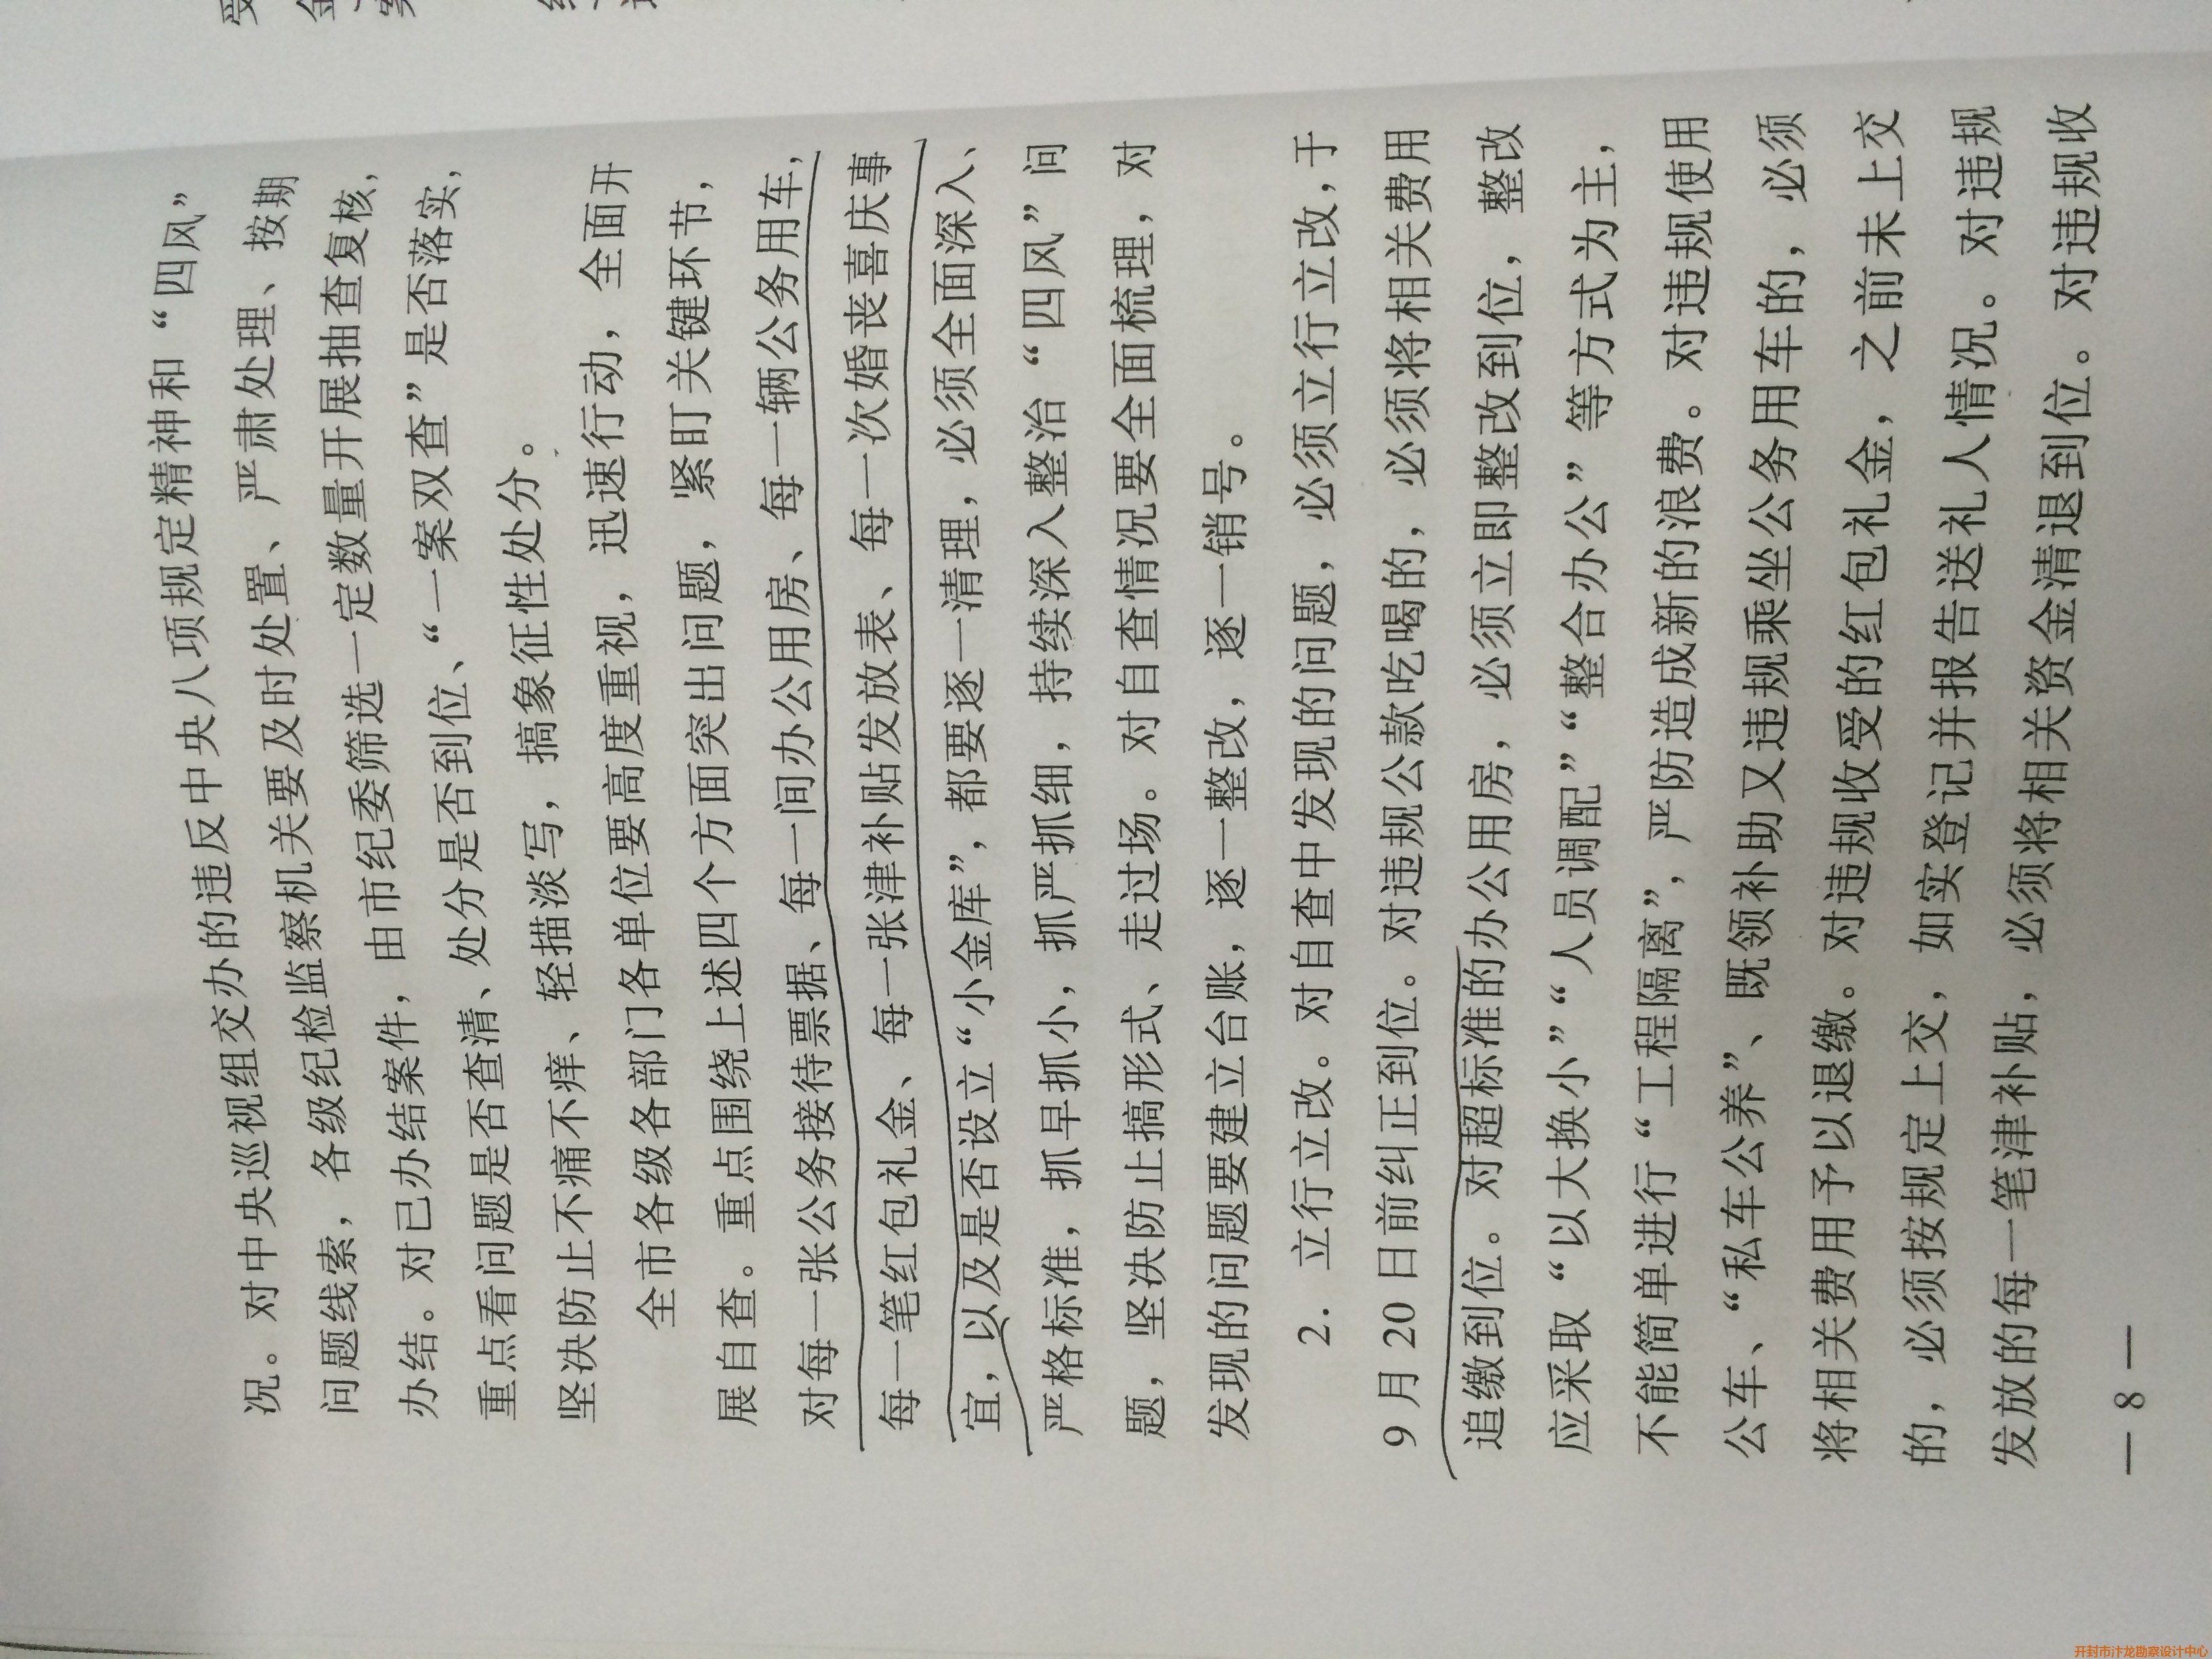 况。对中央巡视组交办的违反中央八项规定精神和“四风”
问题线索，各级纪检监察机关要及时处置、严肃处理、按期
办结。对已办结案件，由市纪委筛选一定数量开展抽查复核，
重点看问题是否查清、处分是否到位、“一案双查”是否落实，
坚决防止不痛不痒、轻描淡写，搞象征性处分。
全市各级各部门各单位要高度重视，迅速行动，全面开
展自查。重点围绕上述四个方面突出问题，紧盯关键环节，
对每一张公务接待票据、每一间办公用房、每一辆公务用车，
每一笔红包礼金、每一张津补贴发放表、每一次婚丧喜庆事
宜，以及是否设立“小金库”，都要逐一清理，必须全面深入、
严格标准，抓早抓小，抓严抓细，持续深入整治“四风”问
题，坚决防止搞形式、走过场。对自查情况要全面梳理，对
发现的问题要建立台账，逐一整改，逐一销号。
2. 立行立改。对自查中发现的问题，必须立行立改，于
9月20日前纠正到位。对违规公款吃喝的，必须将相关费用
追缴到位。对超标准的办公用房，必须立即整改到位，整改
应采取“以大换小”“人员调配”“整合办公”等方式为主，
不能简单进行“工程隔离”，严防造成新的浪费。对违规使用
公车、“私车公养”、既领补助又违规乘坐公务用车的，必须
将相关费用予以退缴。对违规收受的红包礼金，之前未上交
的，必须按规定上交，如实登记并报告送礼人情况。对违规
发放的每一笔津补贴，必须将相关资金清退到位。对违规收
— 8 —
开封市汴龙勘察设计中心